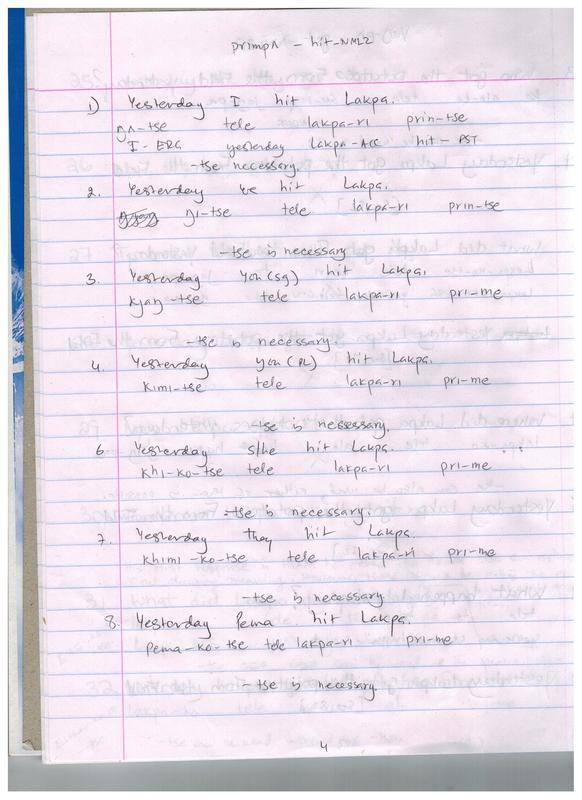 primpʌ - hit-NMLZ
1) Yesterday I hit Lakpa.
ŋʌ-tse tele lakpa-ri prin-tse
I-ERG yesterday Lakpa-ACC hit-PST
-tse necessary.
2. Yesterday we hit Lakpa.
ŋi-tse tele lakpa-ri prin-tse
-tse is necessary
3. Yesterday you(sg) hit Lakpa.
kjaŋ-tse tele lakpa-ri pri-me
-tse is necessary.
4. Yesterday you(PL) hit Lakpa.
kimi-tse tele lakpa-ri pri-me
-tse is nessessary.
6. Yesterday s/he hit Lakpa.
khi-ko-tse tele lakpa-ri pri-me
-tse is necessary.
7. Yesterday they hit Lakpa.
khimi-ko-tse tele lakpa-ri pri-me
-tse is necessary
8. Yesterday Pema hit Lakpa.
pema-ko-tse tele lakpa-ri pri-me
-tse is necessary.
4